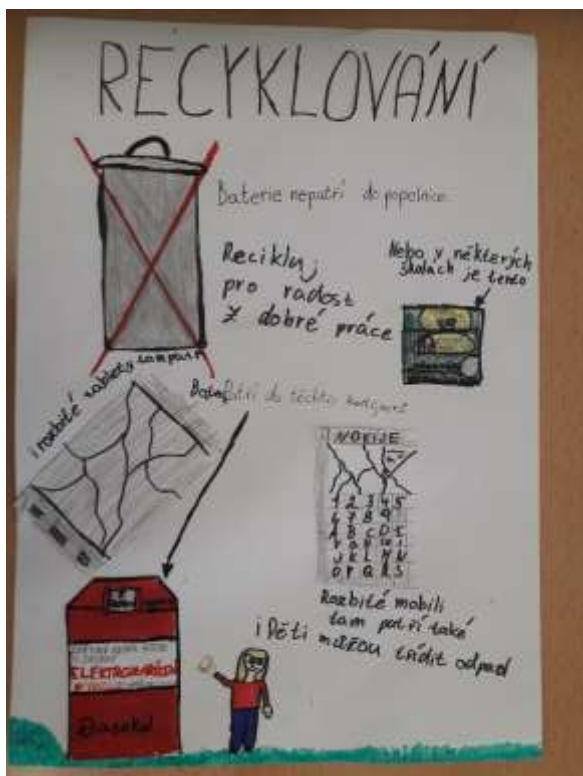 RECYKLOVÁNÍ
Baterie nepatří do popelnice
Recikluj
pro radost
z dobré práce
Nebo v některých
školách je tento
i rozbité tablety tam patří
patří do těchto
NOKIJE
1 2 3 4 5
6 7 8 9
A B C D E
J K L M N
O P Q R S
Rozbité mobili
tam patří také
i Děti
můžou třídit odpad
ELEKTROZAŘÍZENÍ
Asekol